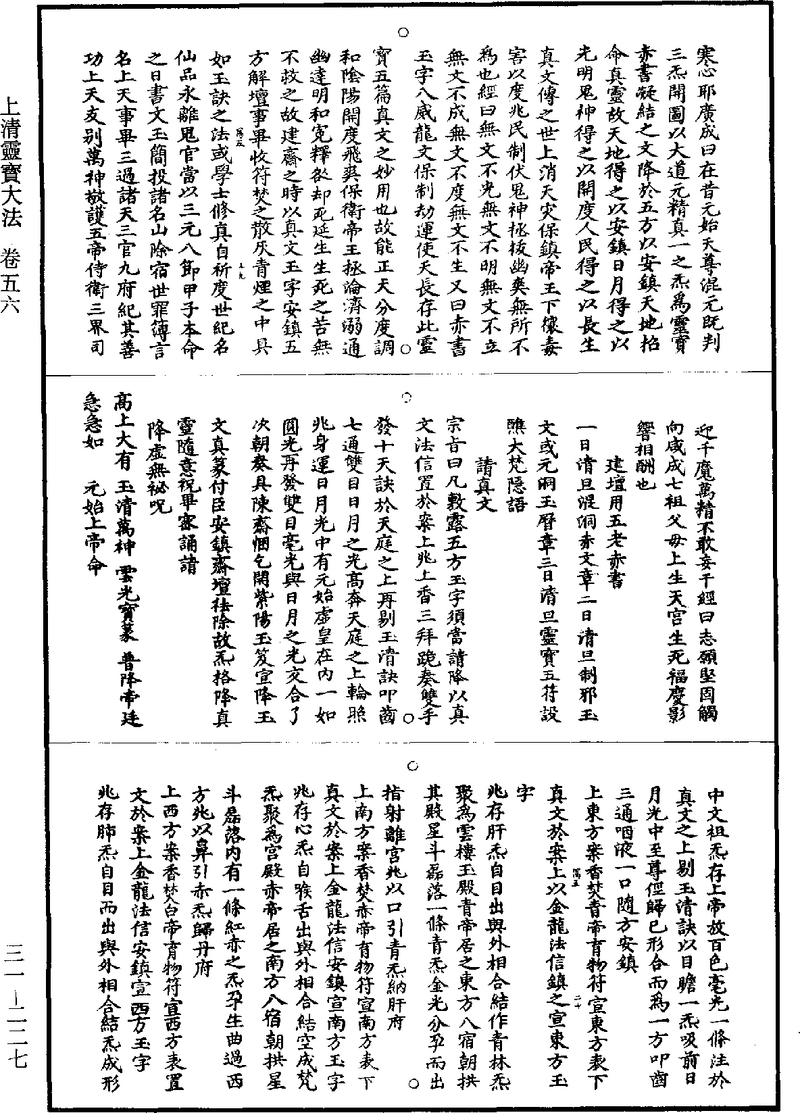 上清靈寶大法 卷五六
三一—二二七
寒心耶廣成曰在昔元始天尊混元既判
三炁開圖以大道元精真一之炁為靈寶
赤書凝結之文降於五方以安鎮天地招
命真靈故天地得之以安鎮日月得之以
光明鬼神得之以開度人民得之以長生
真文傳之世上消天災保鎮帝王下禳毒
害以度兆民制伏鬼神拯拔幽奧無所不
為也經曰無文不光無文不明無文不立
無文不成無文不度無文不生又曰赤書
玉字八威龍文保制劫運使天長存此靈
寶五篇真文之妙用也故能正天分度調
和陰陽開度飛爽保衛帝王拯淪濟溺通
幽達明和冤釋欲却死延生生死之苦無
不救之故建齋之時以真文玉字安鎮五
方解壇事畢收符焚之散灰青煙之中具
如玉訣之法或學士修真自祈度世紀名
仙品永離鬼官當以三元八節甲子本命
之日書文玉簡投諸名山除宿世罪簿言
名上天事畢三過諸天三官九府紀其善
功上天友別萬神敬護五帝侍衛三界司
迎千魔萬精不敢妄干經曰志願堅固觸
向咸成七祖父母上生天宮生死福慶影
響相酬也
建壇用五老赤書
一日清旦混洞赤文章二日清旦制邪玉
文或元洞玉曆章三日清旦靈寶五符設
醮大梵隱語
請真文
宗旨曰凡敷露五方玉字須當請降以真
文法信置於案上兆上香三拜跪奏雙手
發十天訣於天庭之上再剔玉清訣叩齒
七通雙目日月之光高奔天庭之上輪照
兆身運日月光中有元始虛皇在內一如
圓光再發雙目毫光與日月之光交合了
次朝奏具陳齋悃乞開紫陽玉笈宣降玉
文真篆付臣安鎮齋壇祛除故炁格降真
靈隨意祝畢密誦請
降虛無祕呪
高上大有 玉清萬神 雲光寶篆 普降帝廷
急急如 元始上帝命
中文祖炁存上帝放百色毫光一條注於
真文之上剔玉清訣以目瞻一炁吸前日
月光中至尊徑歸己形合而為一方叩齒
三通咽液一口隨方安鎮
上東方案香焚青帝育物符宣東方表下
真文於案上以金龍法信鎮之宣東方玉
字
兆存肝炁自目出與外相合結作青林炁
聚為雲樓玉殿青帝居之東方八宿朝拱
其殿星斗磊落一條青炁金光分孕而出
指射離宮兆以口引青炁納肝府
上南方案香焚赤帝育物符宣南方表下
真文於案上金龍法信安鎮宣南方玉字
兆存心炁自喉舌出與外相合結空成梵
炁聚為宮殿赤帝居之南方八宿朝拱星
斗磊落內有一條紅赤之炁孕生曲過西
方兆以鼻引赤炁歸丹府
上西方案香焚白帝育物符宣西方表置
文於案上金龍法信安鎮宣西方玉字
兆存肺炁自目而出與外相合結炁成形